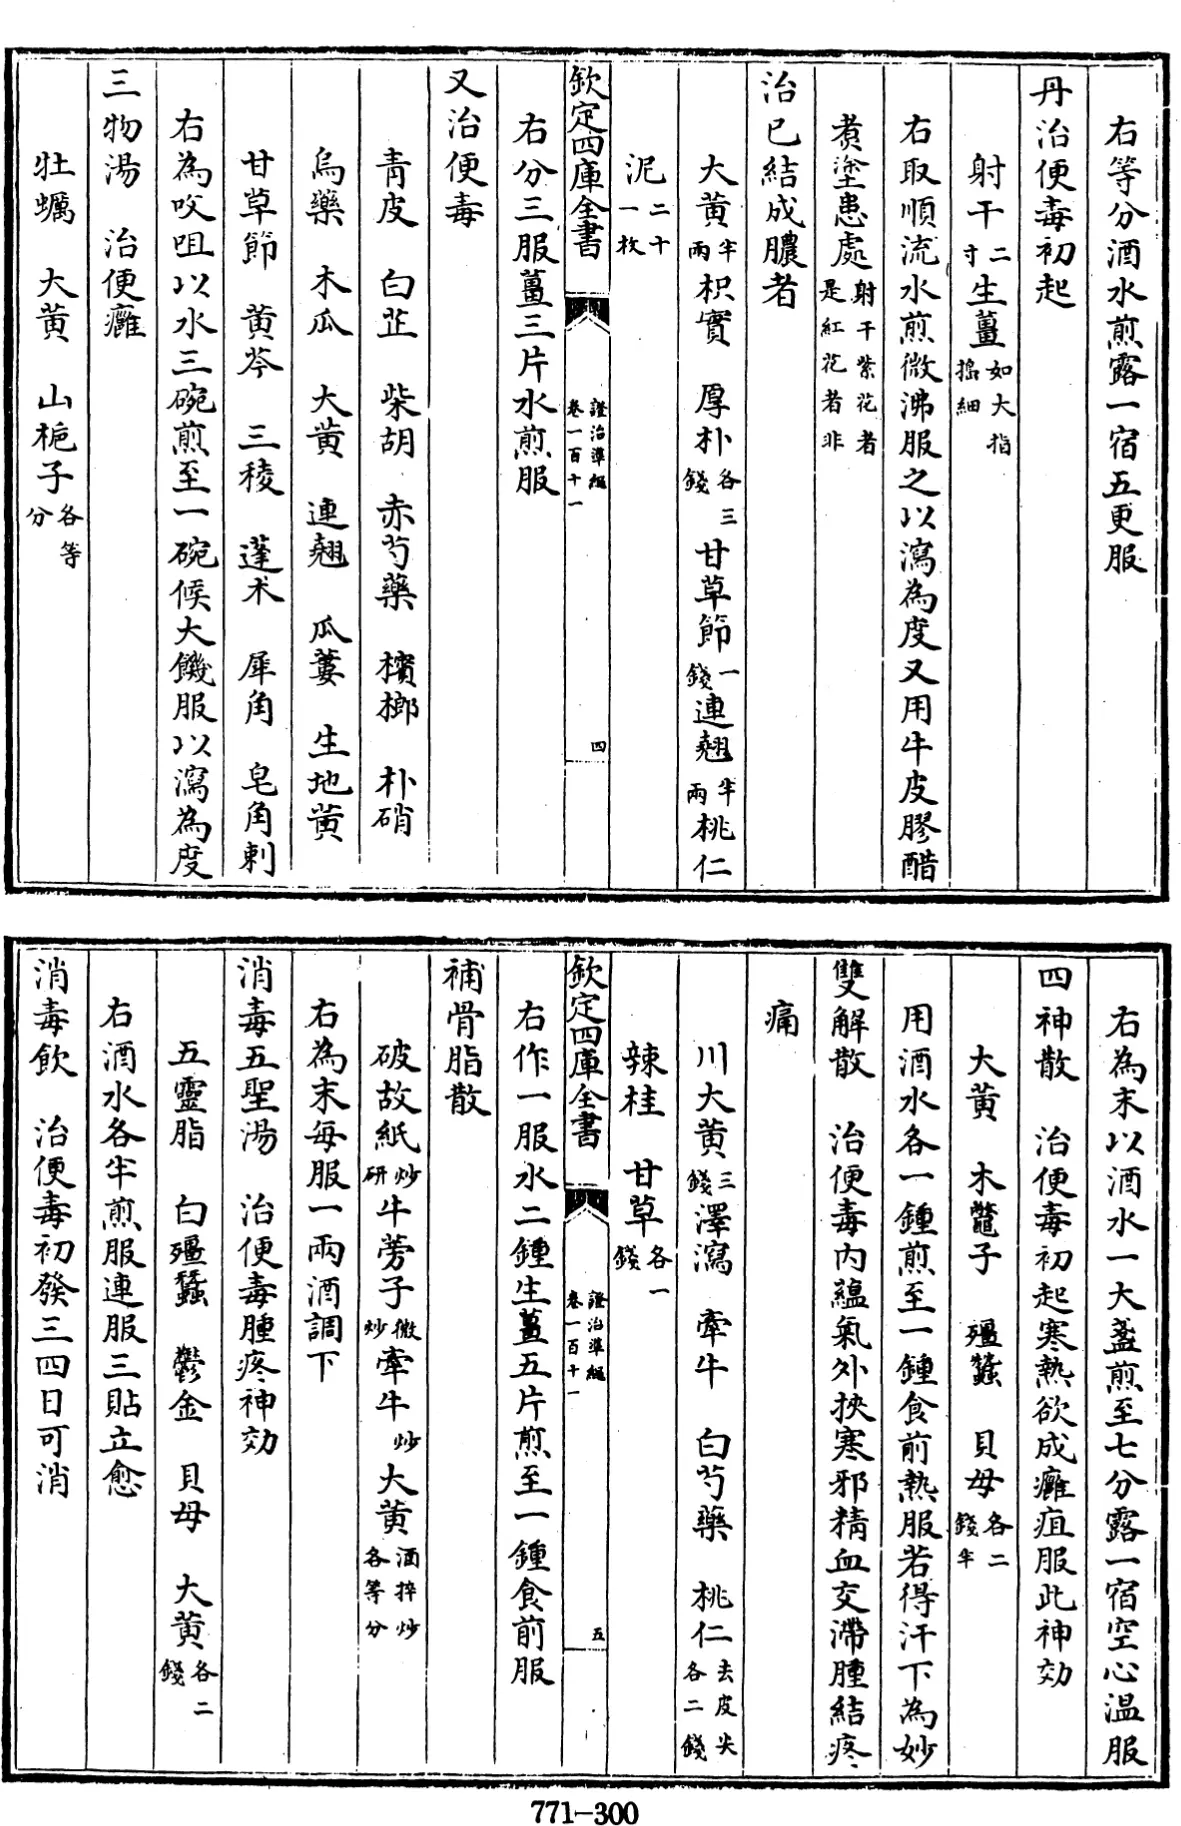 右等分酒水煎露一宿五更服
丹治便毒初起
射干二寸生薑如大指搗細
右取順流水煎微沸服之以瀉為度又用牛皮膠醋
煑塗患處射干紫花者是紅花者非
治已結成膿者
大黄半兩枳實　厚朴各三錢甘草節一錢連翹半兩桃仁
泥二十一枚
欽定四庫全書　證治準繩卷一百十一　四
右分三服薑三片水煎服
又治便毒
青皮　白芷　柴胡　赤芍藥　檳榔　朴硝
烏藥　木瓜　大黄　連翹　瓜蔞　生地黄
甘草節　黄芩　三稜　蓬术　犀角　皂角刺
右為㕮咀以水三碗煎至一碗候大饑服以瀉為度
三物湯　治便癰
牡蠣　大黄　山梔子各等分
右為末以酒水一大盞煎至七分露一宿空心温服
四神散　治便毒初起寒熱欲成癰疽服此神効
大黄　木鼈子　殭蠶　貝母各二錢半
用酒水各一鍾煎至一鍾食前熱服若得汗下為妙
雙解散　治便毒内藴氣外挾寒邪精血交滯腫結疼
痛
川大黄三錢澤瀉　牽牛　白芍藥　桃仁去皮尖各二錢
辣桂　甘草各一錢
欽定四庫全書　證治準繩卷一百十一　五
右作一服水二鍾生薑五片煎至一鍾食前服
補骨脂散
破故紙炒研牛蒡子微炒牽牛炒大黄酒拌炒各等分
右為末每服一兩酒調下
消毒五聖湯　治便毒腫疼神効
五靈脂　白殭蠶　鬱金　貝母　大黄各二錢
右酒水各半煎服連服三貼立愈
消毒飲　治便毒初發三四日可消
771-300